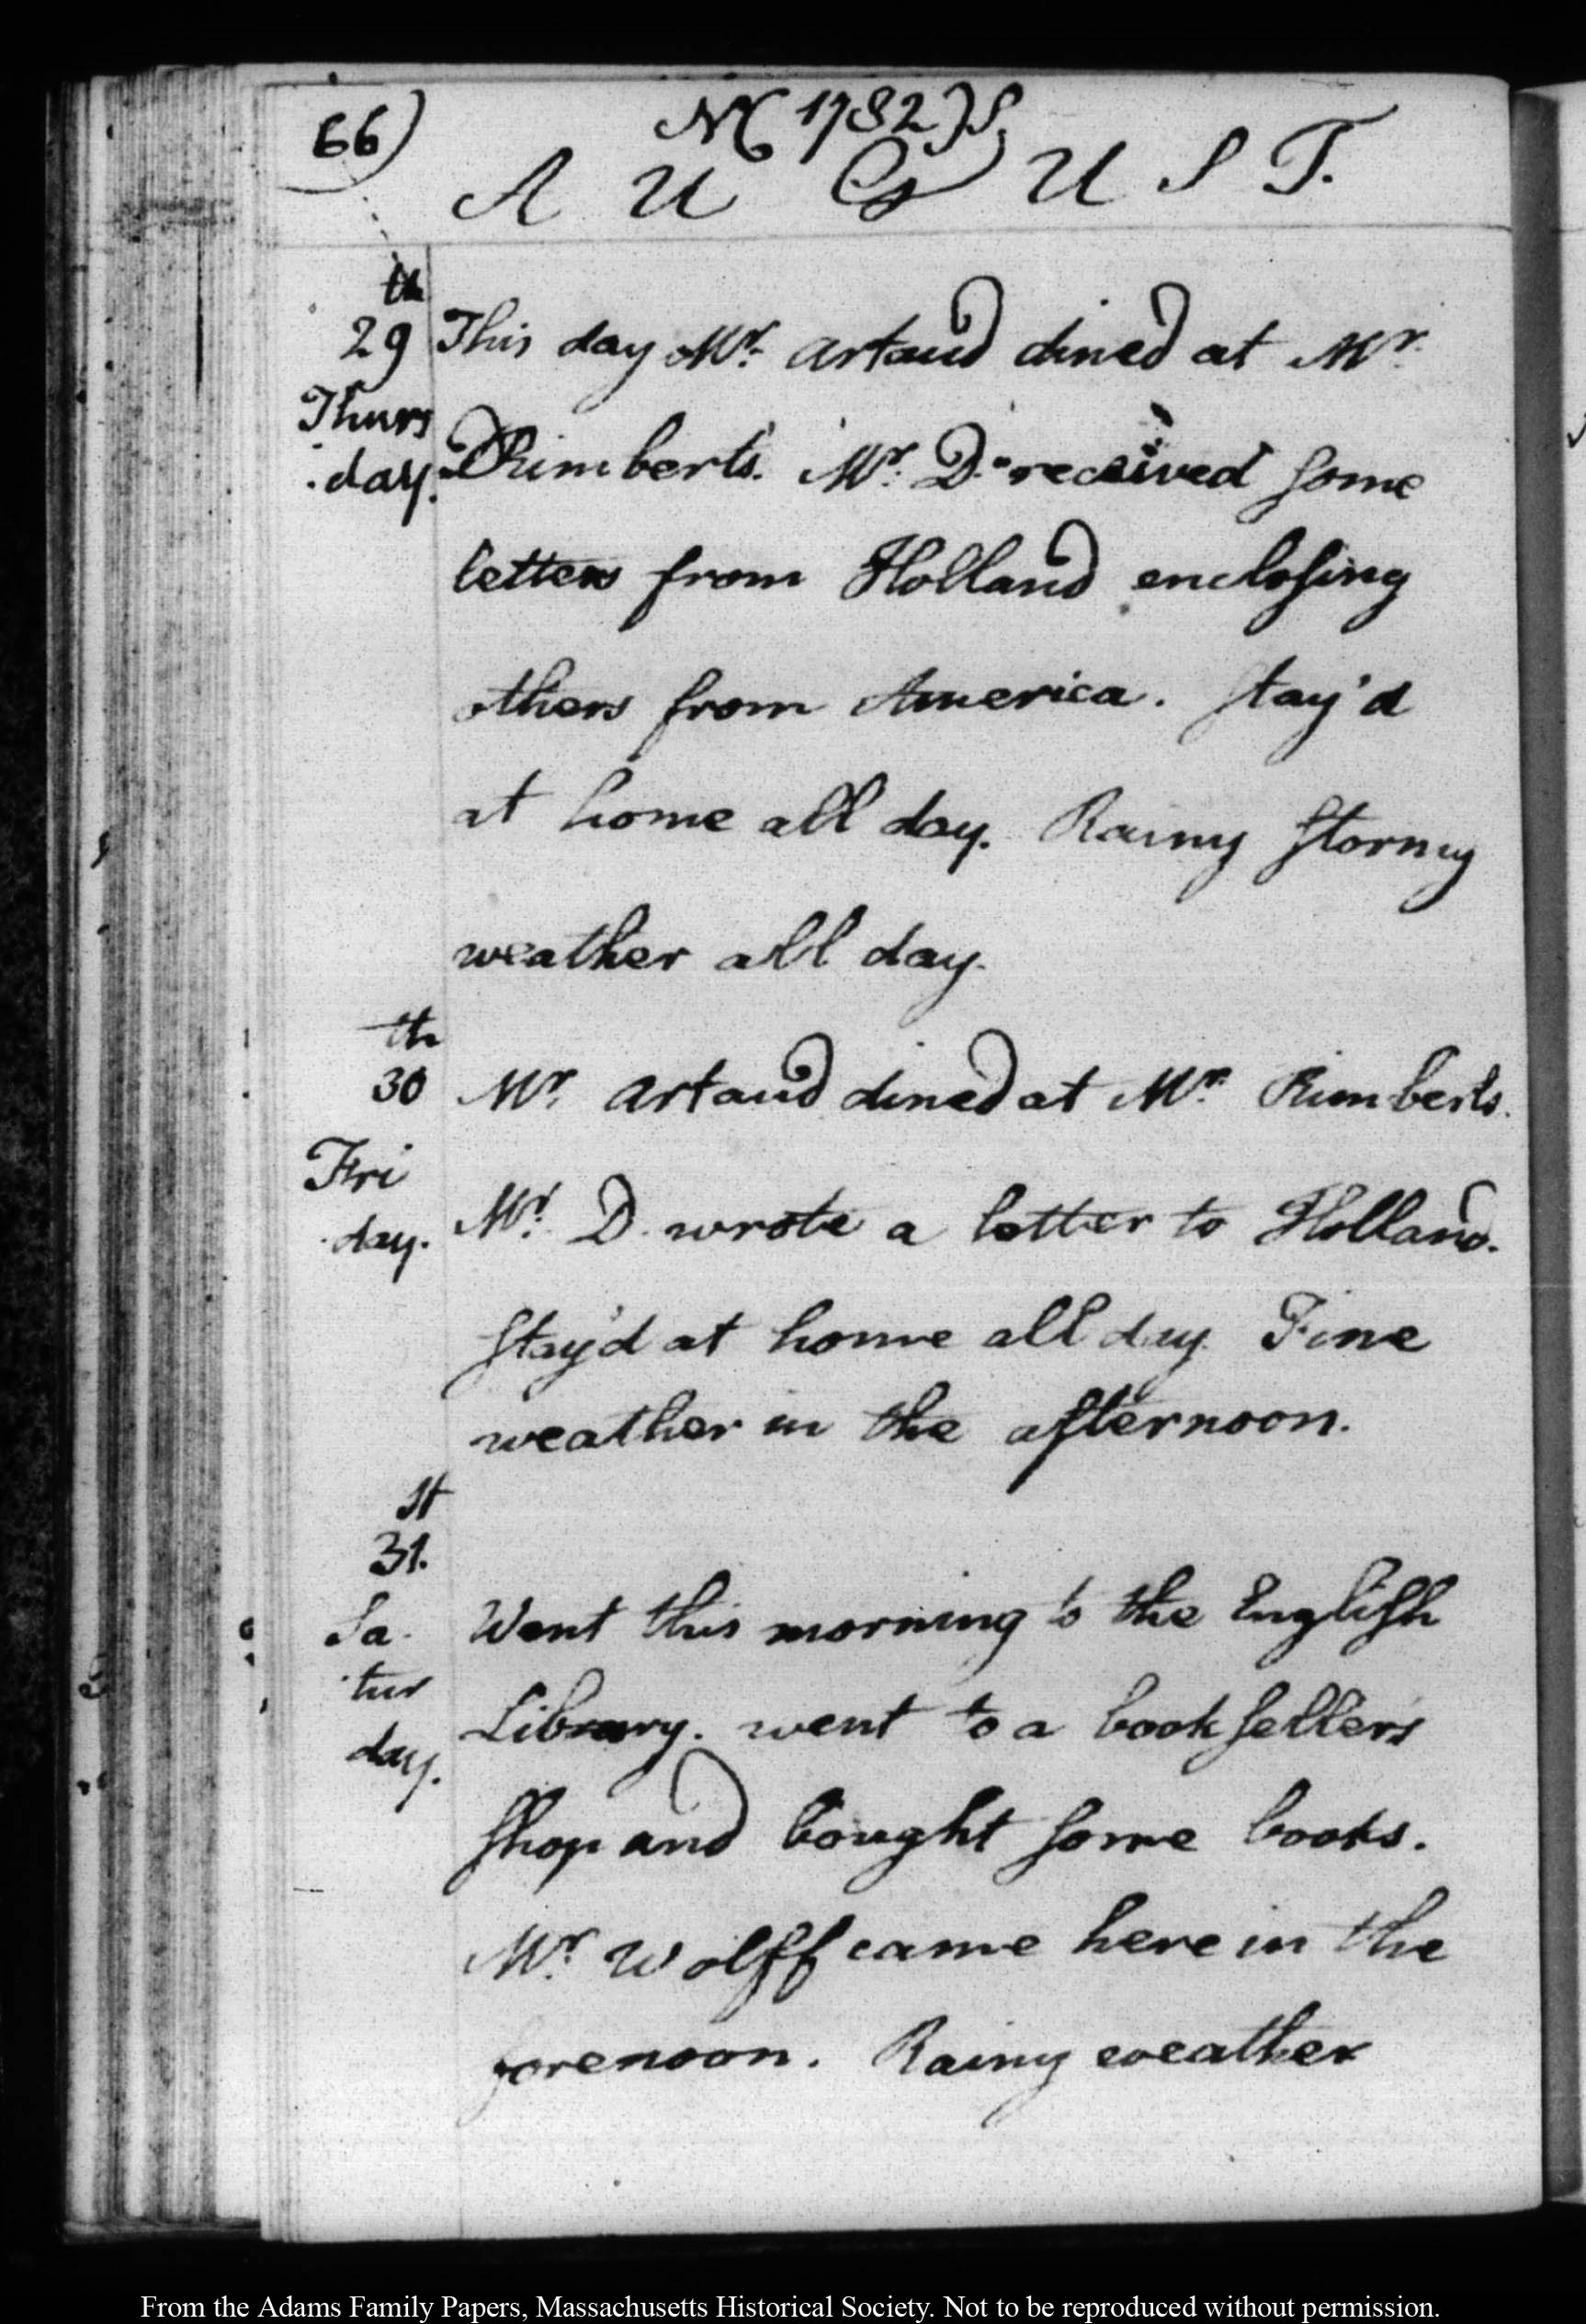 66)
N( 1782 )S
AUGUST.
th
29 This day Mr. Artaud dined at Mr.
Thurs
day. Rimberts. Mr. D. received some
letters from Holland enclosing
others from America. Stay'd
at home all day. Rainy stormy
weather all day.
th
30 Mr. Artaud dined at Mr. Rimberts.
Fri
day. Mr. D. wrote a letter to Holland.
Stay'd at home all day. Fine
weather in the afternoon.
st
31.
Sa Went this morning to the English
tur Library. went to a booksellers
day.
shop and bought some books.
Mr. Wolff came here in the
forenoon. Rainy weather
From the Adams Family Papers, Massachusetts Historical Society. Not to be reproduced without permission.